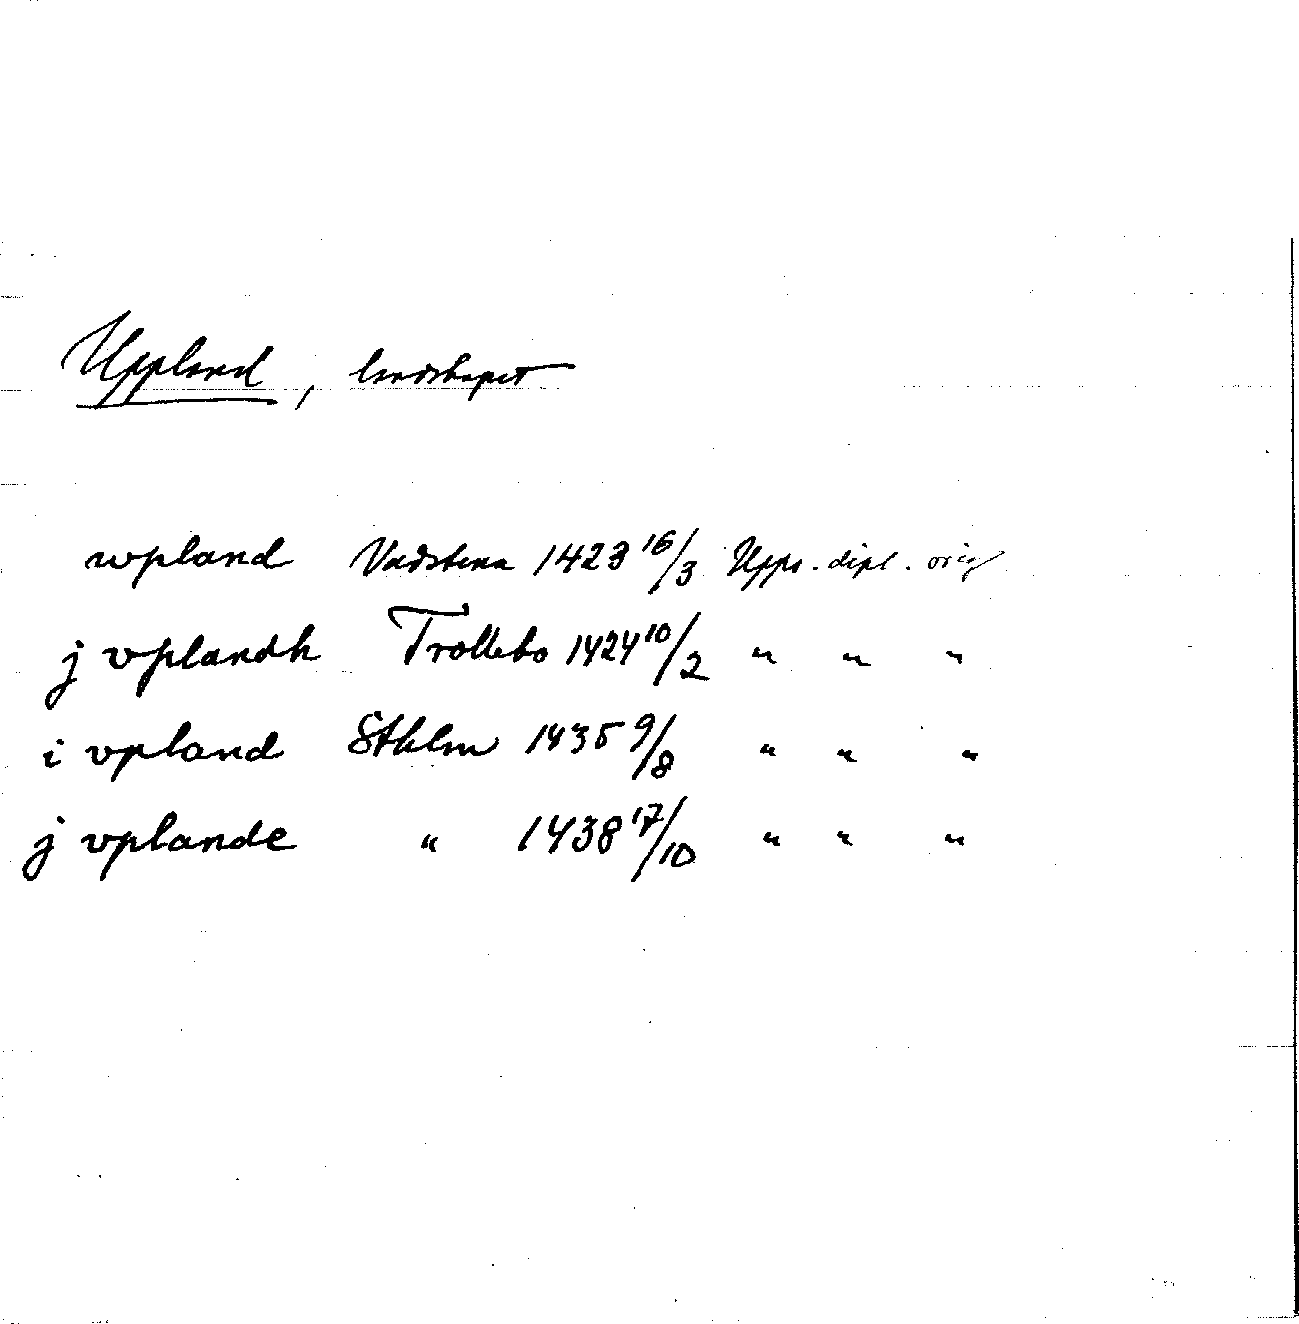 Uppland, landskapet
wpland Vadstena 1423 16/3 Upps. dipl. orig
j vplandh Trollebo 1424 10/2 " " "
i vpland Sthlm 1435 9/8 " " "
j vplande " 1438 17/10 " " "